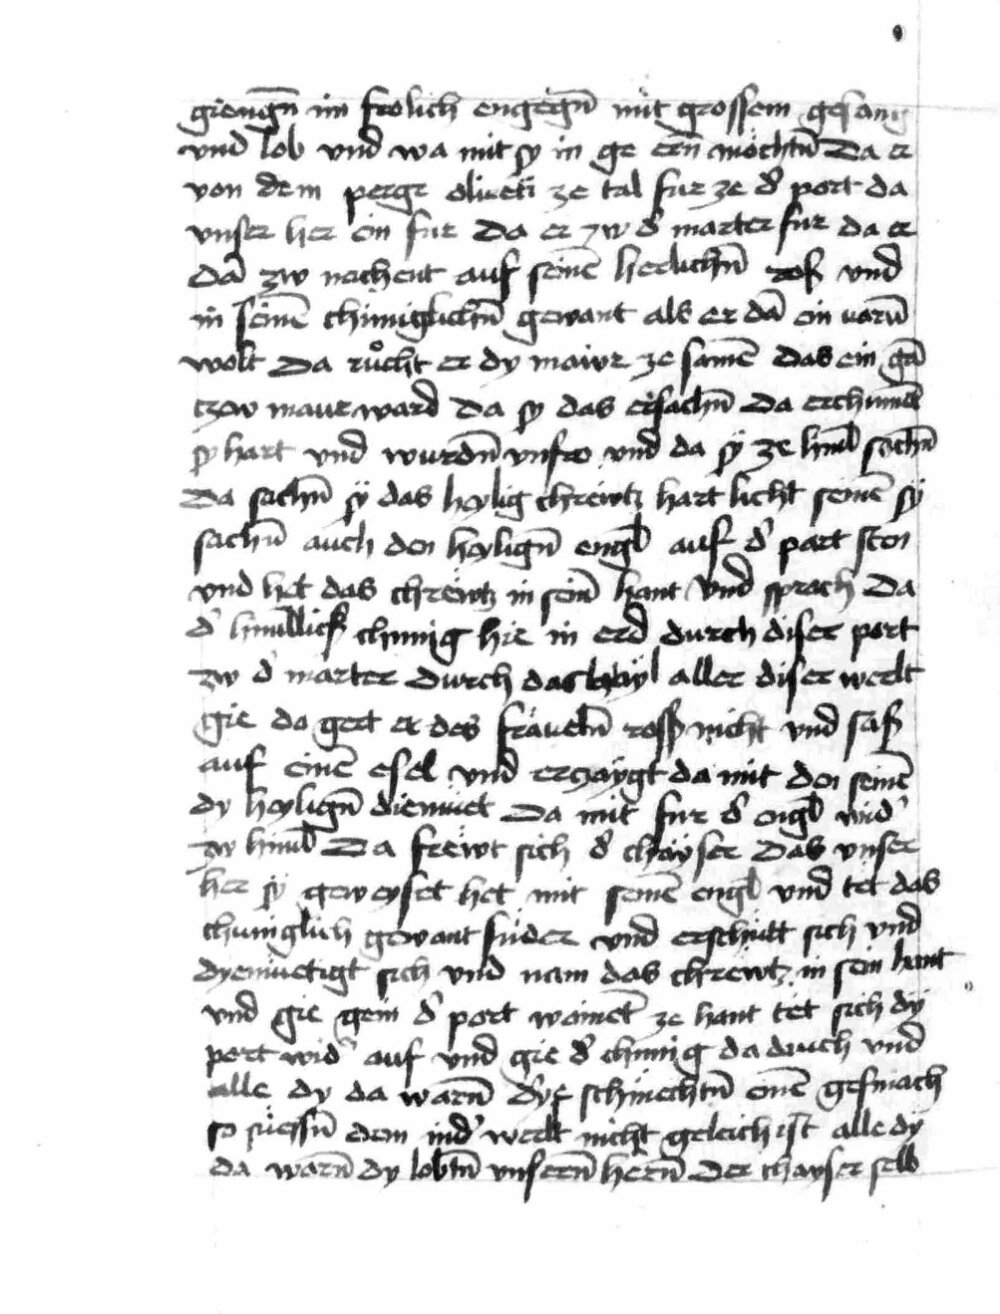 giengn̄ im frolich engegn̄ mit grossem gesang
vnd lob vnd wa mit sy in ge ern̄ möchtn̄ Da er
von dem perge oliueti ze tal fur ze d' port da
vnser her ein fur Da er zw d' marter fur da er
dā zw nachent auf seinē herlichn̄ ros vnd
in seinē chüniglichn̄ gewant als er dā ein varn̄
wolt Da růcht er dy mawr ze samē das ein gā
czew maur ward Da sy das ersachn̄ Da erchumē
sy hart vnd wurdn̄ vnfro vnd da sÿ ze himl̄ sachn̄
Da sachn̄ sÿ das heylig chrewtz hart licht seinē sÿ
sachn̄ auch den heylign̄ engl̄ auf d' part sten
vnd het das chrewtz in sein̄ hant Vnd sprach Da
d' himllisch chunig hie in erd durch diser port
zw d' marter durch das hayl aller diser werlt
gie da gert er des fräueln̄ ross nicht vnd sas
auf einē esel vnd erczaygt da mit den seinē
dy heylign̄ diemuet Da mit fur d' engl̄ wid'
zw himl̄ Da frewt sich d' chayser Das vnser
her sÿ geweyset het mit seinē engl̄ vnd tet das
chuniglich gewant fuder vnd erschutt sich vnd
dyemuetigt sich vnd nam das chrewtz in sein hant
vnd gie gein d' port wainēt ze hant tet sich dÿ
port wid' auf vnd gie d' chunig da durch vnd
alle dy da warn̄ dy schmechtn̄ einē gesmach
so suessn̄ dem in d' werlt nicht geleich ist alle dÿ
da warn̄ dy lobtn̄ vnsern̄ hern̄ Der chayser selb